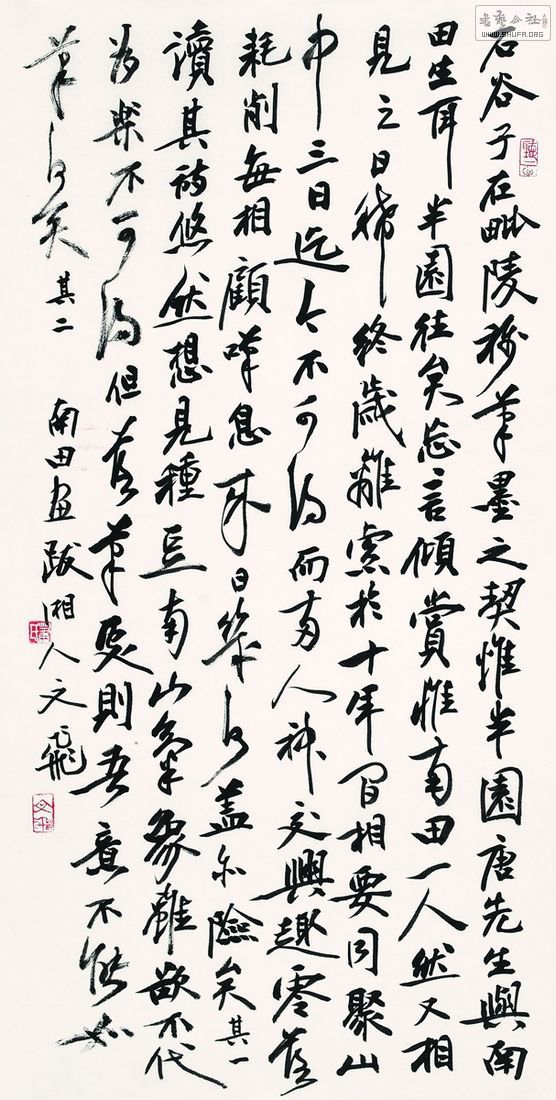 石谷子在毗陵稱筆墨之契惟半園唐先生與南
田生耳半園往矣忘言傾賞惟南田一人然又相
見之日稀終歲離索於十年間相要同聚山
中三日迄今不可得而兩人神交興趣零落
耗削每相顧嘆息來日幾何蓋亦險矣其一
讀其詩悠然想見種豆南山氣象雖欲不代
為樂不可得但落筆處則吾意不能如
筆何矣 其二 南田畫跋湘人文飛
WWW.SHUFA.ORG